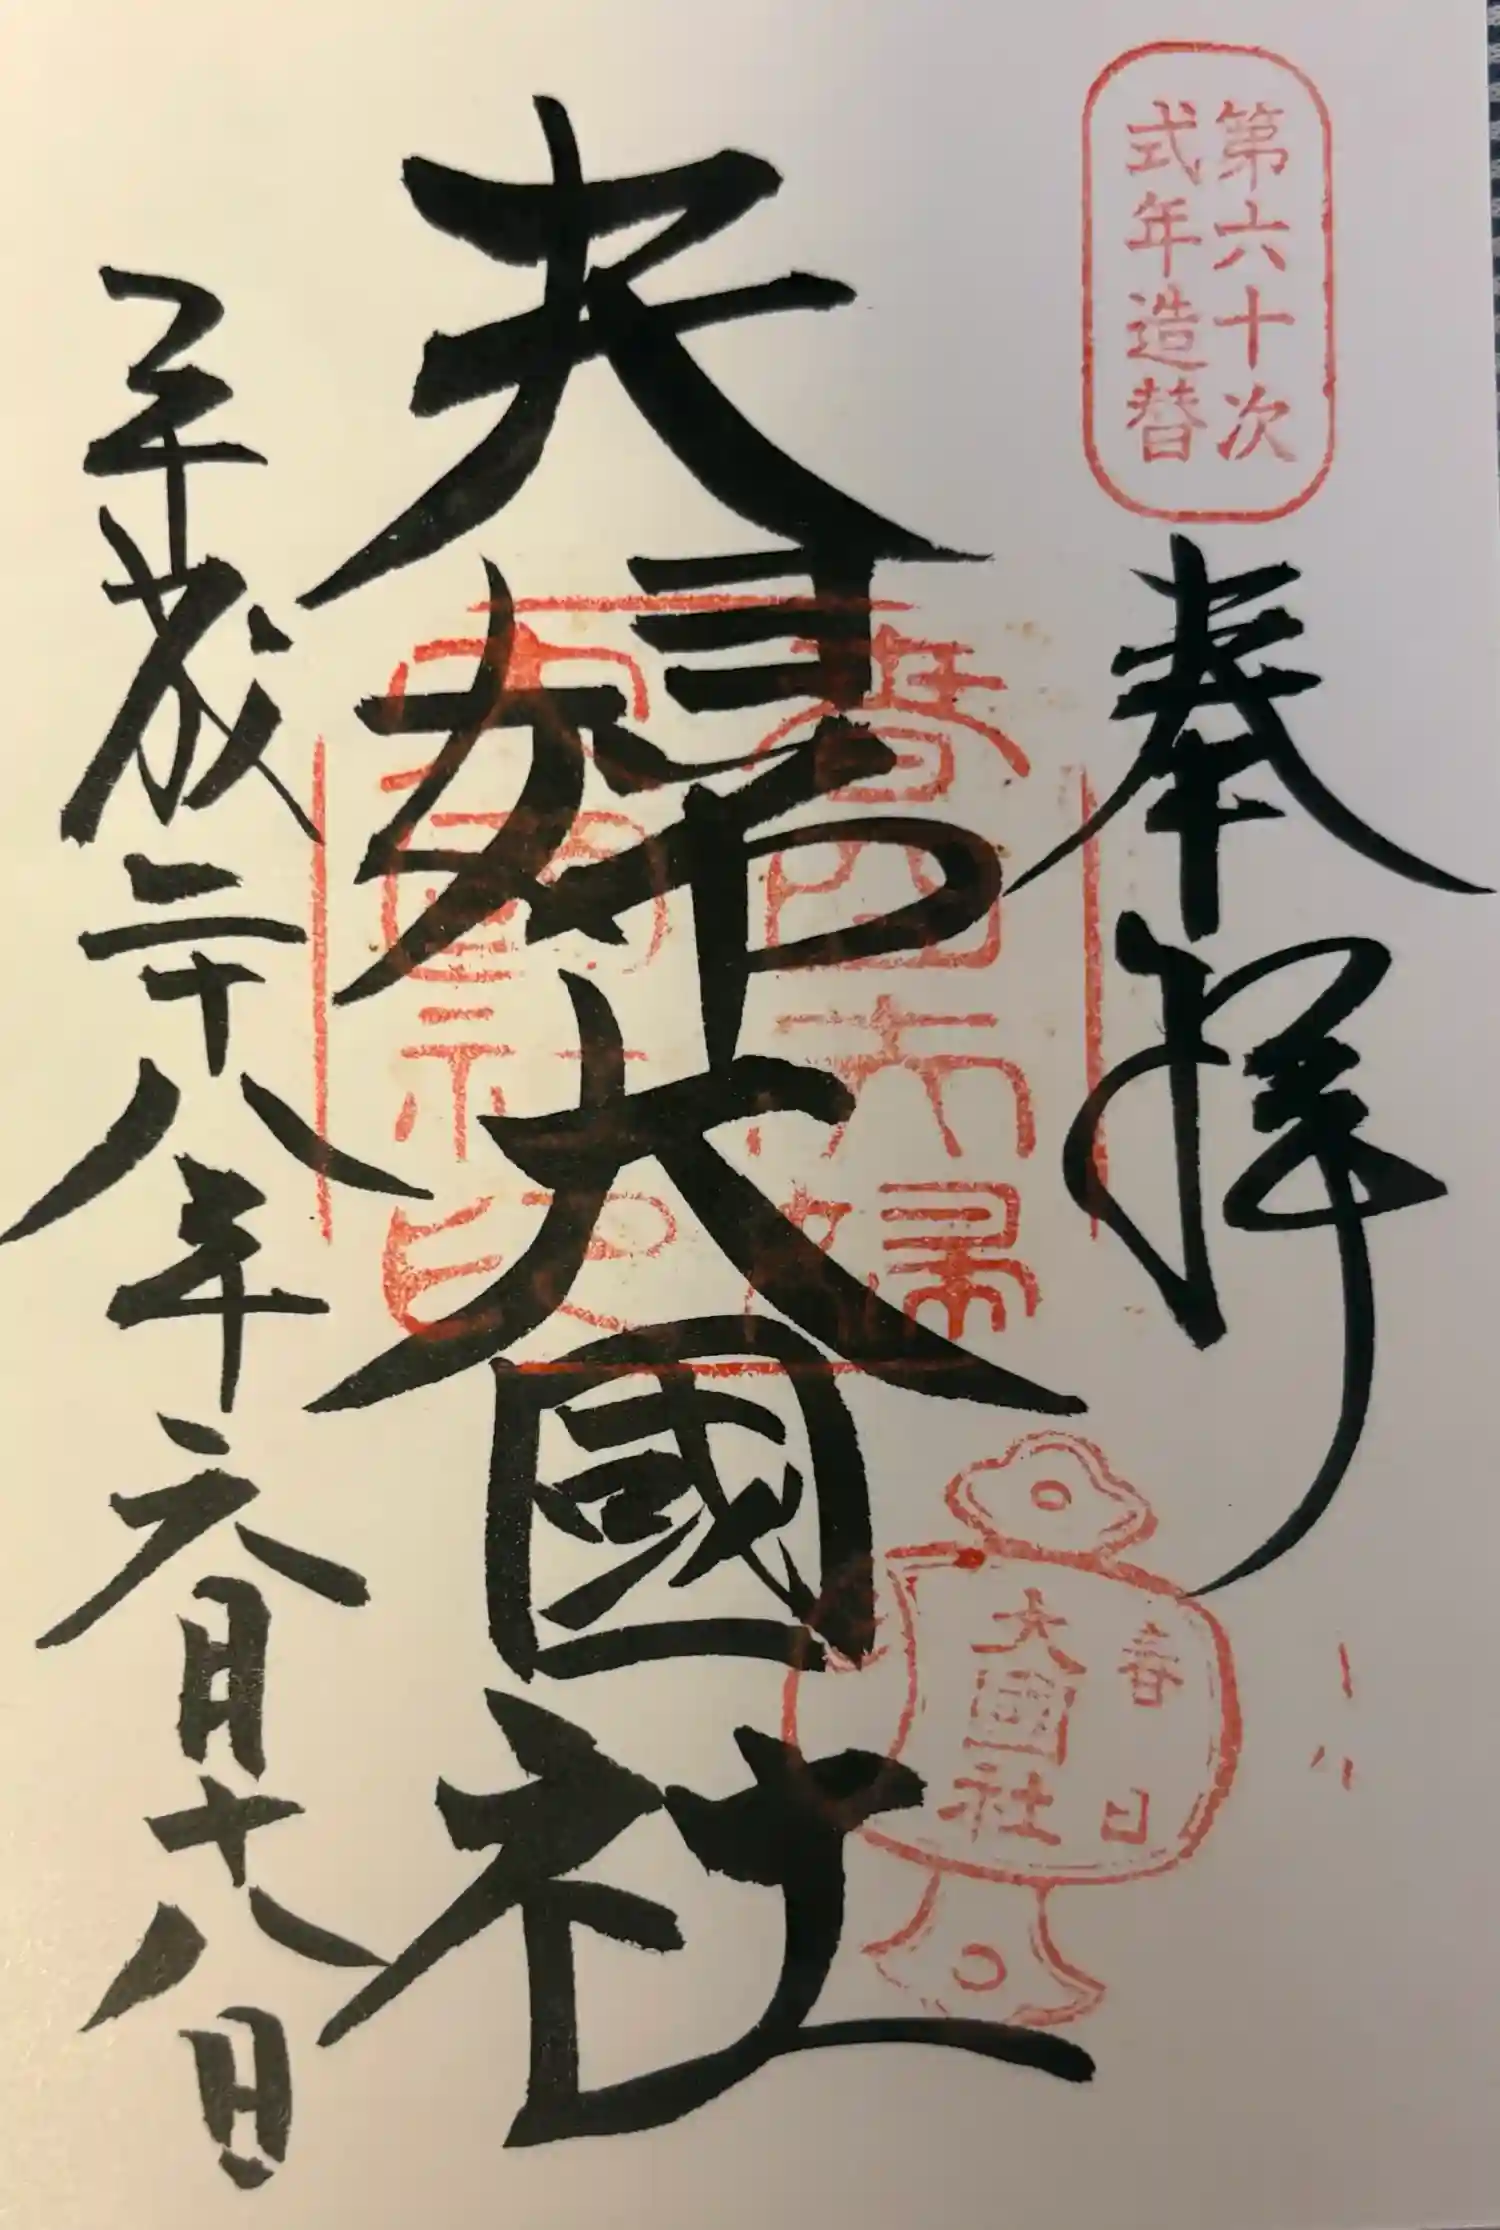 第六十次
式年造替
奉拝
夫婦大國社
春日
大國社
平成二十八年六月十八日